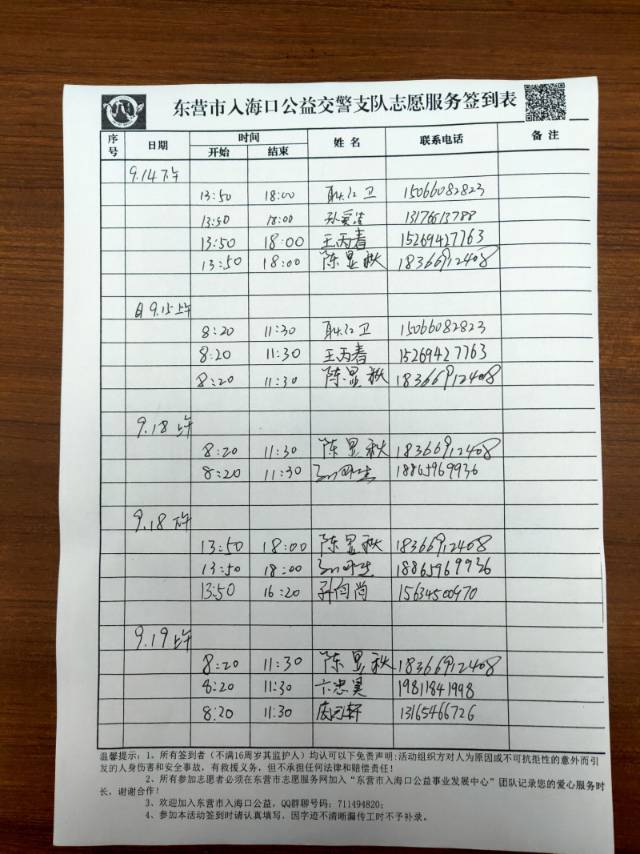 东营市入海口公益交警支队志愿服务签到表
序号 日期 时间 姓名 联系电话 备注
开始 结束
9.14下午
13:50 18:00 耿江卫 15066082823
13:50 18:00 孙爱 13176513788
13:50 18:00 王丙春 15269427763
13:50 18:00 陈显秋 18366912408
9.15上午
8:20 11:30 耿江卫 15066082823
8:20 11:30 王丙春 15269427763
8:20 11:30 陈显秋 18366912408
9.18上午
8:20 11:30 陈显秋 18366912408
8:20 11:30 18865969936
9.18下午
13:50 18:00 陈显秋 18366912408
13:50 18:00 18865969936
13:50 16:20 孙尚 15634500970
9.19上午
8:20 11:30 陈显秋 18366912408
8:20 11:30 卞忠昊 19811841998
8:20 11:30 轩 13165466726
温馨提示：1、所有签到者（不满16周岁其监护人）均认可以下免责声明：活动组织方对人为原因或不可抗拒性的意外而引
发的人身伤害和安全事故，有救援义务，但不承担任何法律和赔偿责任！
2、所有参加志愿者必须在东营市志愿服务网加入“东营市入海口公益事业发展中心”团队记录您的爱心服务时
长，谢谢合作！
3、欢迎加入东营市入海口公益，QQ群聊号码：711494820；
4、参加本活动签到时请认真填写，因字迹不清晰漏传工时不予补录。